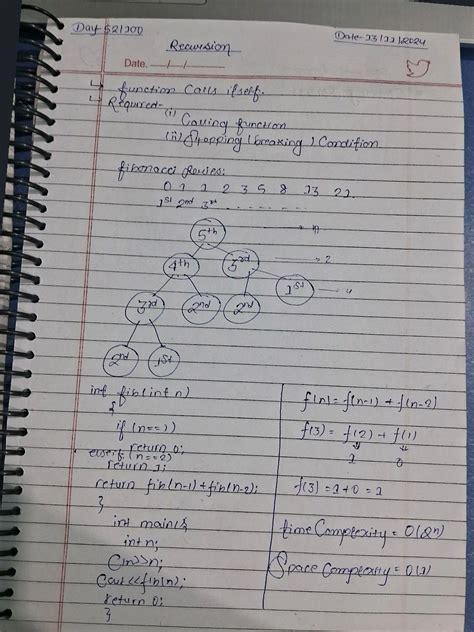 Day-52/100
Date-13/11/2024
Recursion
Date. __/__/__
↳ function Calls itself.
↳ Required-
(i) Calling function
(ii) Stopping (breaking) Condition
fibonacci Series:
0 1 1 2 3 5 8 13 21
1st 2nd 3rd - - - - - -
5th
4th 3rd 2
3rd 2nd 2nd 1st 4
2nd 1st
int fib(int n)
{
if (n==1)
return 0;
elseif (n==2)
return 1;
return fib(n-1)+fib(n-2);
}
int main(){
int n;
Cin>>n;
Cout<<fib(n);
return 0;
}
f(n)=f(n-1) + f(n-2)
f(3) = f(2) + f(1)
↓ ↓
1 0
f(3) = 1+0 = 1
time Complexity = O(2ⁿ)
Space Complexity = O(1)